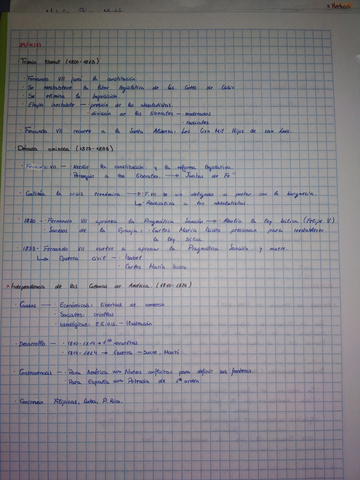 Trienio liberal (1820-1823)
Fernando VII jura la constitución
Se restablece la labor legislativa de las Cortes de Cádiz
Se elimina la Inquisición
Etapa inestable - presión de los absolutistas
división de los liberales - moderados
exaltados
Fernando VII recurre a la Santa Alianza: Los Cien Mil Hijos de San Luis.
Década ominosa (1823-1833)
Fernando VII - la constitución y la reforma legislativa.
Persigue a los liberales → "Juntas de Fe"
Continúa la crisis económica → F. VII se ve obligado a pactar con la burguesía
↳ a los absolutistas
1830 - Fernando VII aprueba la Pragmática Sanción → Abolía la ley Sálica (Felipe V)
Sucesos de la Granja: Carlos María Isidro presiona para restablecer
la ley Sálica
1833 - Fernando VII vuelve a aprobar la Pragmática Sanción y muere.
↳ Guerra civil - Isabel
Carlos María Isidro
Independencia de las Colonias de América (1810-1824)
Causas - Económicas: libertad de comercio
Sociales: criollos
Ideológicas: EEUU - Ilustración
Desarrollo - 1810-1814 → 1ª revueltas
1814-1824 → Guerra - Sucre, Martí
Consecuencias - Para América ⇒ Nuevos conflictos para definir sus fronteras
Para España ⇒ Potencia de 2º orden
Conservan Filipinas, Cuba, P. Rico.